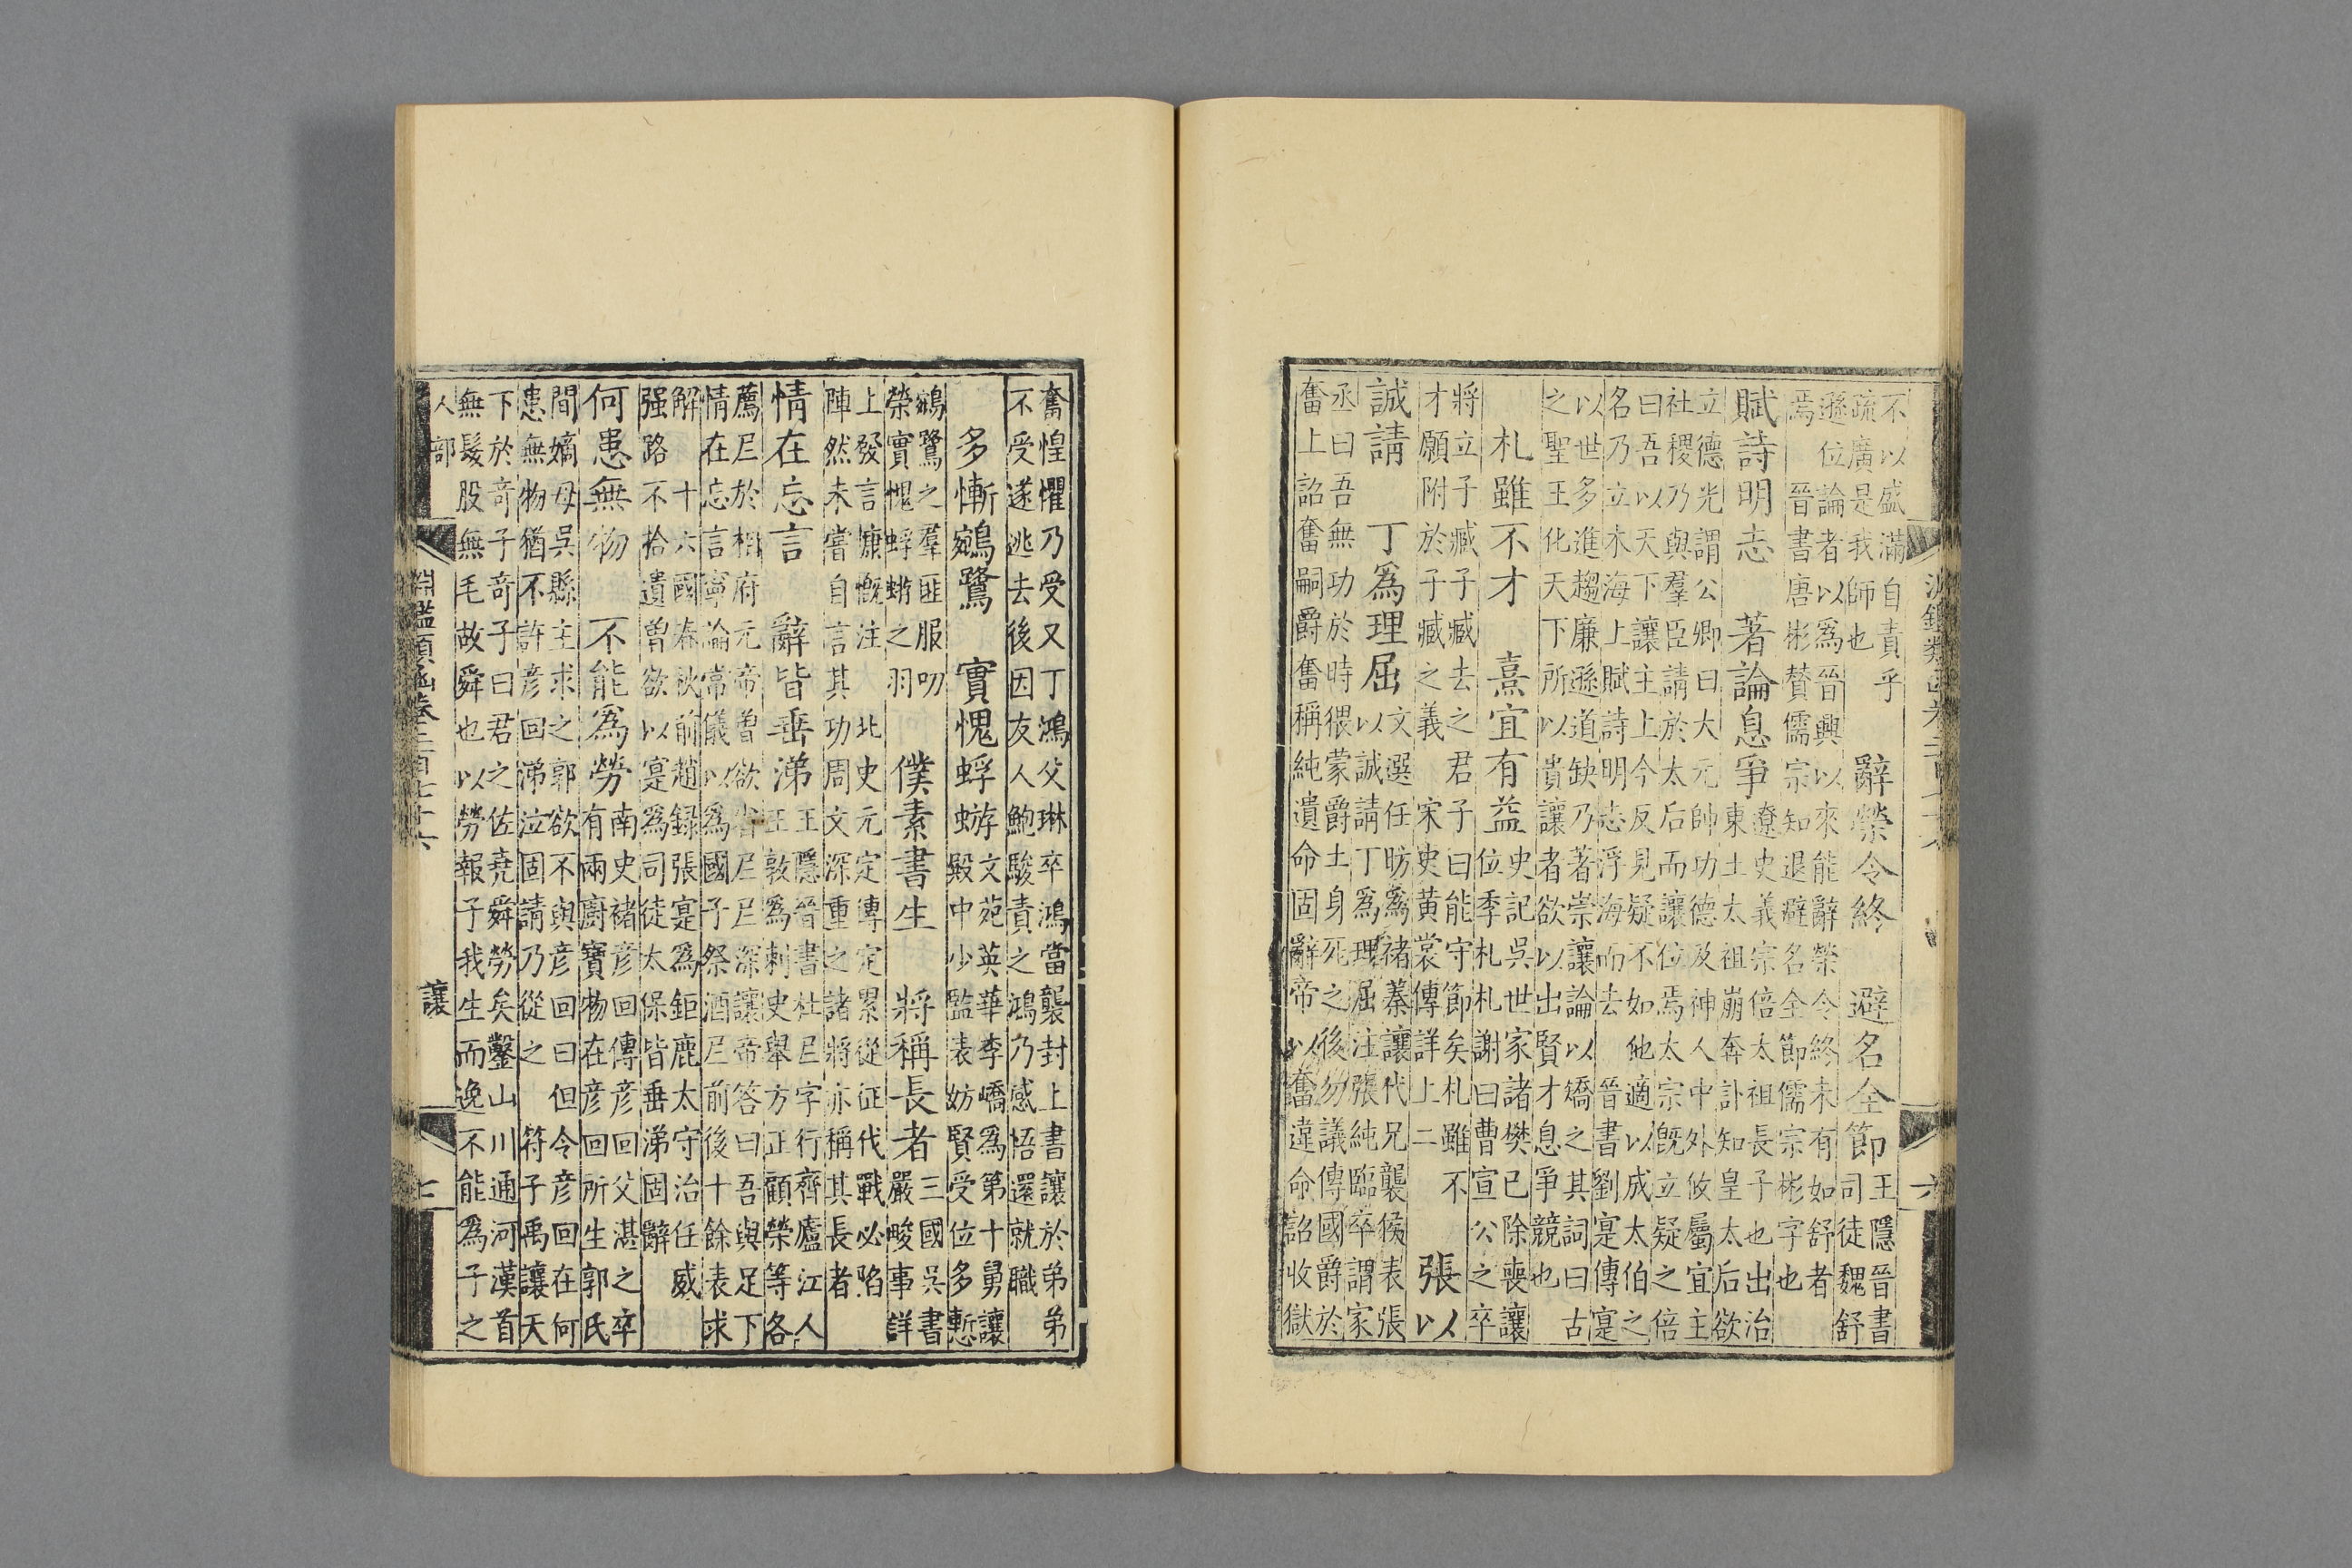 六
不以盛滿自責乎
疏廣是我師也
辭榮令終　避名全節
王隱晉書
司徒魏舒
遜位論者以爲晉興以來能辭榮令終未有如舒者
焉　晉書唐彬贊儒宗知退避名全節儒宗彬字也
賦詩明志　著論息爭
遼史義宗倍太祖長子也出治
東土太祖崩奔訃知皇太后欲
立德光謂公卿曰大元帥功德及神人中外攸屬宜主
社稷乃與羣臣請於太后而讓位焉太宗既立疑之倍
曰吾以天下讓主上今反見疑不如他適以成太伯之
名乃立木海上賦詩明志浮海而去　晉書劉寔傳寔
以世多進趨廉遜道缺乃著崇讓論以矯之其詞曰古
之聖王化天下所以貴讓者欲以出賢才息爭競也
札雖不才　熹宜有益
史記吳世家諸樊已除喪讓
位季札札謝曰曹宣公之卒
將立子臧子臧去之君子曰能守節矣札雖不
才願附於子臧之義　宋史黃裳傳詳上二
張以
誠請　丁爲理屈
文選任昉爲禇蓁讓代兄襲侯表張
以誠請丁爲理屈注張純臨卒謂家
丞曰吾無功於時猥蒙爵土身死之後勿議傳國爵於
奮上詔奮嗣爵奮稱純遺命固辭帝以奮違命詔收獄
奮惶懼乃受又丁鴻父琳卒鴻當襲封上書讓於弟弟
不受遂逃去後因友人鮑駿責之鴻乃感悟還就職
多慚鵷鷺　實愧蜉蝣
文苑英華李嶠爲第十舅讓
殿中少監表妨賢受位多慙
鵷鷺之羣匪服叨
榮實愧蜉蝣之羽
僕素書生　將稱長者
三國吳書
嚴畯事詳
上發言慷慨注　北史元定傳定累從征代戰必陷
陣然未嘗自言其功周文深重之諸將亦稱其長者
情在忘言　辭皆垂涕
王隱晉書杜𡰥字行齊廬江人
王敦爲刺史舉方正顧榮等各
薦𡰥於相府元帝曽欲省𡰥𡰥深讓帝答曰吾與足下
情在忘言寧論常儀以爲國子祭酒𡰥前後十餘表求
解　十六國春秋前趙録張寔爲鉅鹿太守治任威
强路不拾遺曽欲以寔爲司徒太保皆垂涕固辭
何患無物　不能爲勞
南史禇彦回傳彦回父湛之卒
有兩廚寶物在彦回所生郭氏
間嫡母吳縣主求之郭欲不與彦回曰但令彦回在何
患無物猶不許彦回涕泣固請乃從之　符子禹讓天
下於奇子奇子曰君之佐堯舜勞矣鑿山川通河漢首
無髮股無毛故舜也以勞報子我生而逸不能爲子之
人部　淵鑑類函卷二百七十六　讓　七